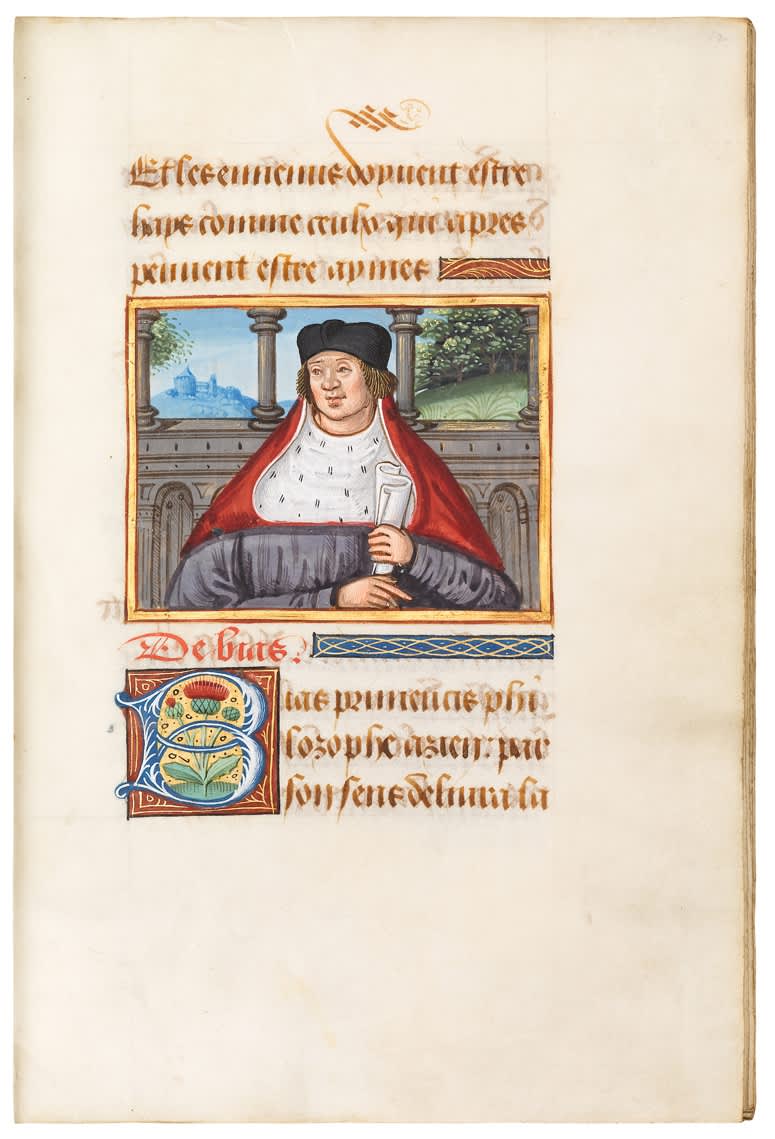 Et les ennemis doyuent estre
hays comme ceulx qui apres
peuuent estre aymes
De bias.
Bias prineucis phi
lozophe azien par
son sens deliura la